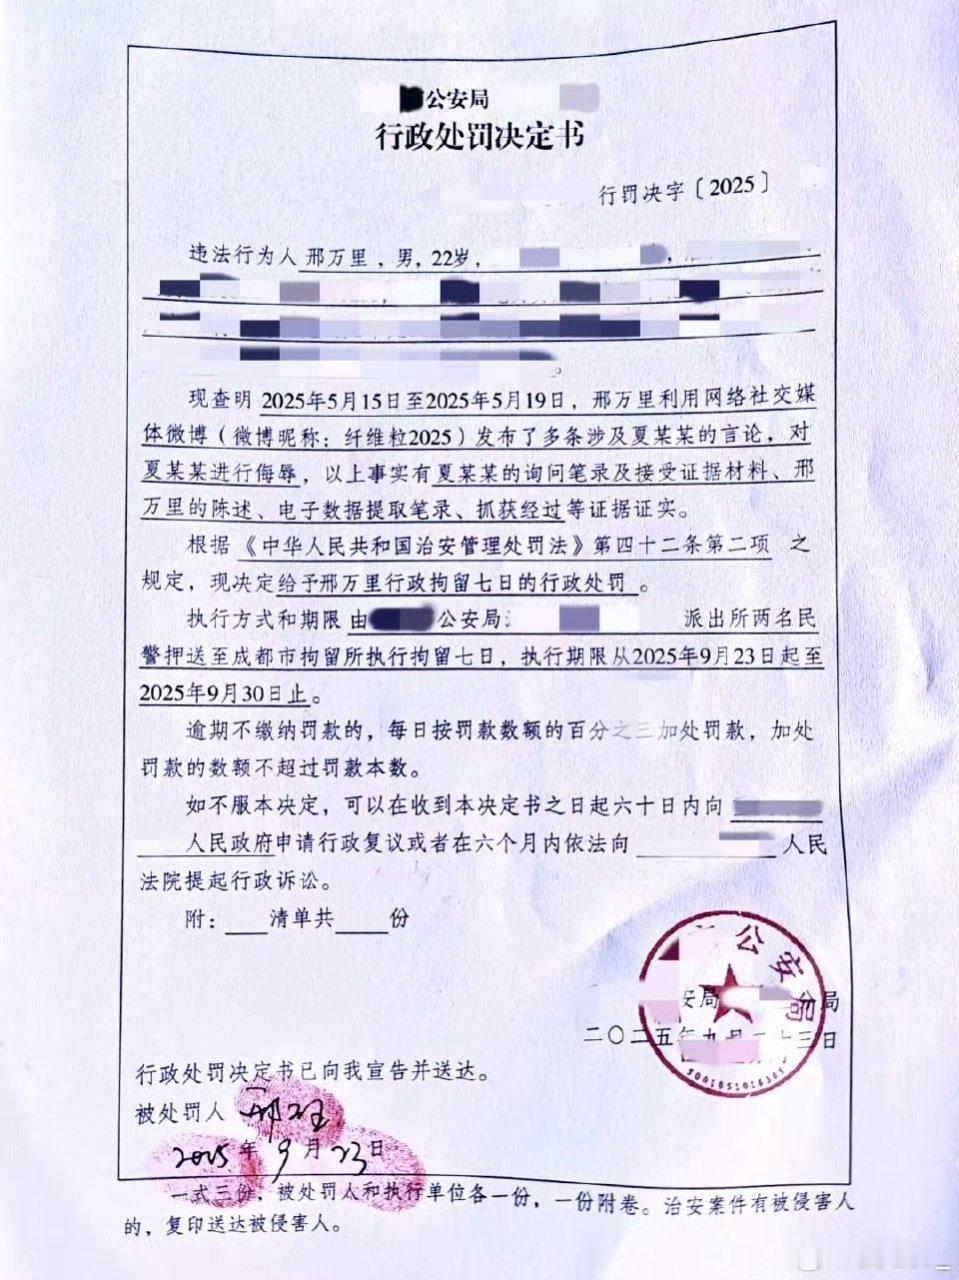 公安局
行政处罚决定书
行罚决字〔2025〕
违法行为人 邢万里，男，22岁，
现查明 2025年5月15日至2025年5月19日，邢万里利用网络社交媒
体微博（微博昵称：纤维粒2025）发布了多条涉及夏某某的言论，对
夏某某进行侮辱，以上事实有夏某某的询问笔录及接受证据材料、邢
万里的陈述、电子数据提取笔录、抓获经过等证据证实。
根据 《中华人民共和国治安管理处罚法》第四十二条第二项 之
规定，现决定给予邢万里行政拘留七日的行政处罚 。
执行方式和期限 由 公安局 派出所两名民
警押送至成都市拘留所执行拘留七日，执行期限从2025年9月23日起至
2025年9月30日止。
逾期不缴纳罚款的，每日按罚款数额的百分之三加处罚款，加处
罚款的数额不超过罚款本数。
如不服本决定，可以在收到本决定书之日起六十日内向
人民政府申请行政复议或者在六个月内依法向 人民
法院提起行政诉讼。
附： 清单共 份
公安局
安局 分局
二〇二五年九月二十三日
行政处罚决定书已向我宣告并送达。
被处罚人
2025年9月23日
一式三份，被处罚人和执行单位各一份，一份附卷。治安案件有被侵害人
的，复印送达被侵害人。